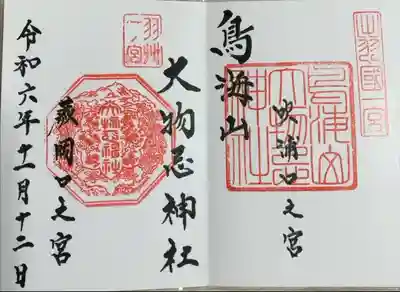 出羽國一宮
鳥海山
吹浦口之宮
鳥海山
大物忌
神社
羽州
一ノ宮
大物忌神社
蕨岡口之宮
令和六年十一月十二日